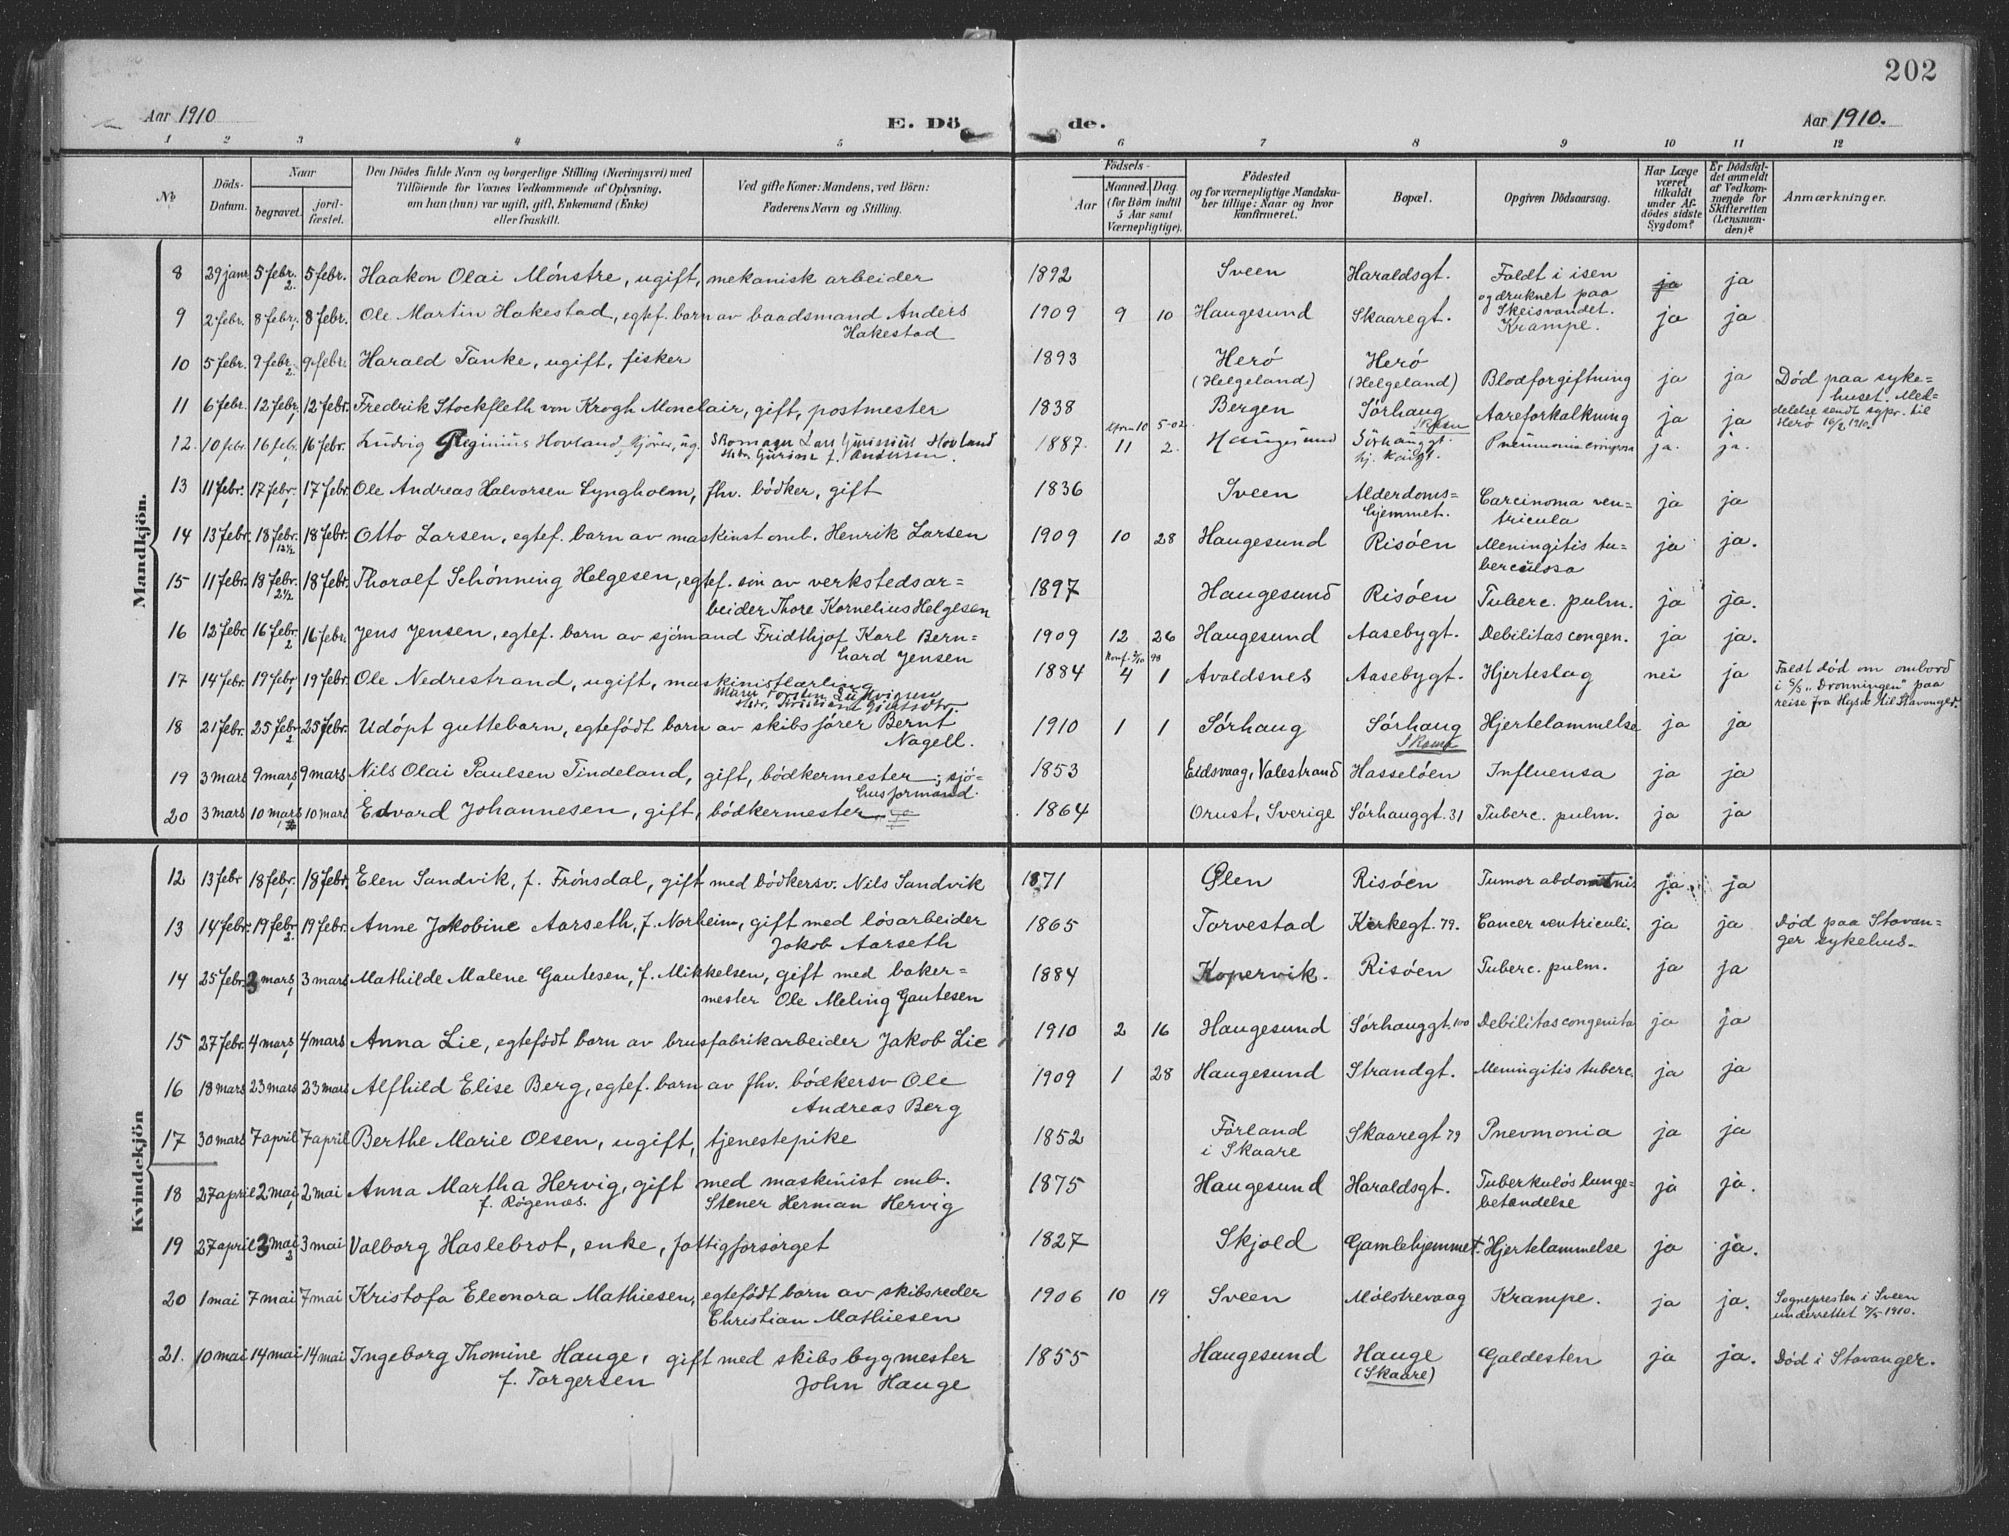 202
Aar 1910
E. Dö
de.
Aar 1910.
1 2 3 4 5 6 7 8 9 10 11 12
No
Döds-
Datum.
Naar
begravet.
jord-
fæstet.
Den Dödes fulde Navn og borgerlige Stilling (Næringsvei) med
Tilföiende for Voxnes Vedkommende af Oplysning,
om han (hun) var ugift, gift, Enkemand (Enke)
eller fraskilt.
Ved gifte Koner: Mandens, ved Börn:
Faderens Navn og Stilling.
Födsels-
Aar
Maaned. Dag.
(for Börn indtil
5 Aar samt
Værnepligtige).
Födested
og for værnepligtige Mandsku-
ber tillige: Naar og hvor
konfirmeret.
Bopæl.
Opgiven Dödsaarsag.
Har Læge
været
tilkaldt
under Af-
dödes sidste
Sygdom?
Er Dödsfal-
det anmeldt
af Vedkom-
mende for
Skifteretten
(Lensman-
den)?
Anmærkninger.
Mandkjön.
8 29 janr 5 febr. 2. 5 febr. Haakon Olai Mónstre, ugift, mekanisk arbeider 1892 Sveen Haraldsgt. Faldt i isen ja ja
og druknet paa
Skeisvandet.
9 2 febr. 8 febr. 8 febr. Ole Martin Hakestad, egtef. barn av baadsmand Anders 1909 9 10 Haugesund Skaaregt. Krampe. ja ja
Hakestad
10 5 febr. 9 febr. 2 9 febr. Harald Tanke, ugift, fisker 1893 Heró Heró
(Helgeland) (Helgeland) Blodforgiftning ja ja Död paa syke=
huset. Med-
delelse sendt sypr. til
Heró 16/2 1910.
11 6 febr. 12 febr. 12 febr. Fredrik Stockfleth von Krogh Monclair, gift, postmester 1838 Bergen Sórhaug Aareforkalkning ja ja
12. 10 febr. 16 febr. 16 febr. Ludvig Hovland, ug. Skomager Lars Hovland 1887. 11 2. Haugesund Sórhauggt. Pneumonia ja. ja.
Andersen.
13 11 febr. 17 febr. 17 febr. Ole Andreas Halvorsen Lyngholm, fhv. bódker, gift 1836 Sveen Alderdoms= Carcinoma ven- ja ja
hjemmet. tricula
14 13 febr. 18 febr. 12½ 18 febr. Otto Larsen, egtef. barn av maskinist omb. Henrik Larsen 1909 10 28 Haugesund Risóen Meningitis tu= ja ja.
berculosa
15 11 febr. 18 febr. 2½ 18 febr. Thoralf Schónning Helgesen, egtef. sön av verkstedsar= 1897 Haugesund Risóen Tuberc. pulm. ja ja.
beider Thore Kornelius Helgesen
16 12 febr. 16 febr. 2 16 febr. Jens Jensen, egtef. barn av sjómand Fridthjof Karl Bern- 1909 12 26 Haugesund Aasebygt. Debilitas congen. ja ja.
hard Jensen
17 14 febr. 19 febr. 19 febr. Ole Nedrestrand, ugift, maskinistlærling 1884 4 1 Avaldsnes Aasebygt. Hjerteslag nei ja Faldt död om ombord
i S/S "Dronningen" paa
reise fra Hgsd til Stavanger.
18 21 febr. 25 febr. 2 25 febr. Udöpt guttebarn, egtefödt barn av skibsförer Bernt 1910 1 1 Sórhaug Sórhaug Hjertelammelse ja ja
Nagell.
19 3 mars 9 mars 9 mars Nils Olai Paulsen Tindeland, gift, bódkermester; sjó= 1853 Eidsvaag, Valestrand Hasselóen Influensa ja ja
husformand.
20 3 mars 10 mars 10 mars Edvard Johannesen, gift, bódkermester 1864 Orust, Sverige Sórhauggt. 31 Tuberc. pulm. ja ja
Kvindekjön
12 13 febr 18 febr. 18 febr. Elen Sandvik, f. Frónsdal, gift med bódkersv. Nils Sandvik 1871 Ølen Risóen Tumor abdominis ja ja
13 14 febr. 19 febr. 2. 19 febr. Anne Jakobine Aarseth, f. Norheim, gift med lösarbeider 1865 Torvestad Kirkegt. 79. Cancer ventriculi. ja ja Död paa Stavan-
Jakob Aarseth ger sykehus.
14 25 febr. 3 mars 3 mars Mathilde Malene Gautesen, f. Mikkelsen, gift med baker= 1884 Kopervik. Risóen Tuberc. pulm. ja ja
mester Ole Meling Gautesen
15 27 febr. 4 mars 4 mars Anna Lie, egtefödt barn av brusfabrikarbeider Jakob Lie 1910 2 16 Haugesund Sórhauggt. 100 Debilitas congenita ja ja
16 18 mars 23 mars 23 mars Alfhild Elise Berg, egtef. barn av fhv. bódkersv Ole 1909 1 28 Haugesund Strandgt. Meningitis tuberc. ja ja
Andreas Berg
17 30 mars 7 april 7 april Berthe Marie Olsen, ugift, tjenestepike 1852 Fórland Skaaregt 79 Pnevmonia ja ja
i Skaare
18 27 april 2 mai 2 mai Anna Martha Hervig, gift med maskinist omb. 1875 Haugesund Haraldsgt. Tuberkulós lunge- ja ja.
f. Rógenæs. Stener Herman Hervig betændelse
19 27 april 3 mai 3 3 mai Valborg Haslebrot, enke, fattigforsórget 1827 Skjold Gamlehjemmet. Hjertelammelse ja ja.
20 1 mai 7 mai 7 mai Kristofa Eleonora Mathiesen, egtefödt barn av skibsreder 1906 10 19 Sveen Mólstrevaag Krampe. ja ja. Sognepresten i Sveen
Christian Mathiesen underrettet 7/5 1910.
21. 10 mai 14 mai 14 mai Ingeborg Thomine Hauge, gift med skibsbygmester 1855 Haugesund Hauge Galdesten ja ja. Död i Stavanger.
f. Torgersen John Hauge (Skaare)